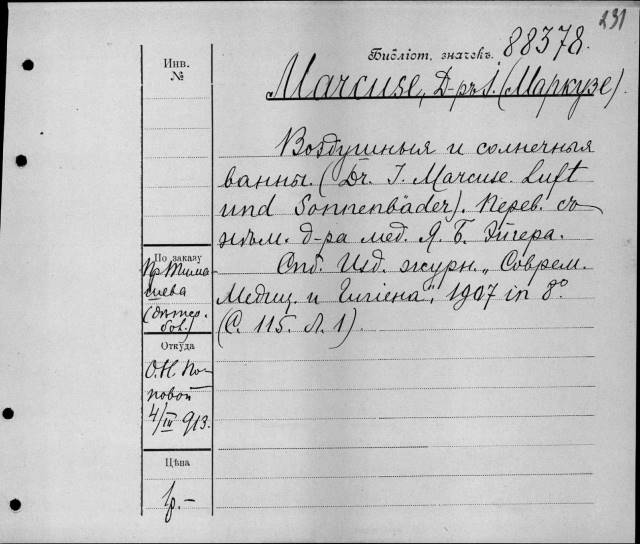 231
Библіот. значекъ. 88378.
Инв.
№
Marcuse, Д-ръ J. (Маркузе).
Воздушныя и солнечныя
ванны. (Dr. J. Marcuse. Luft
und Sonnenbäder). Перев. съ
нѣм. д-ра мед. Я. Б. Эйгера.
Спб. Изд. журн. „Соврем.
Медиц. и Гигіена", 1907 in 8°.
(С. 115. Л. 1).
По заказу
Пр. Тима
шева
Откуда
О. Н. По-
повой
4/III 913.
Цѣна
1р.-